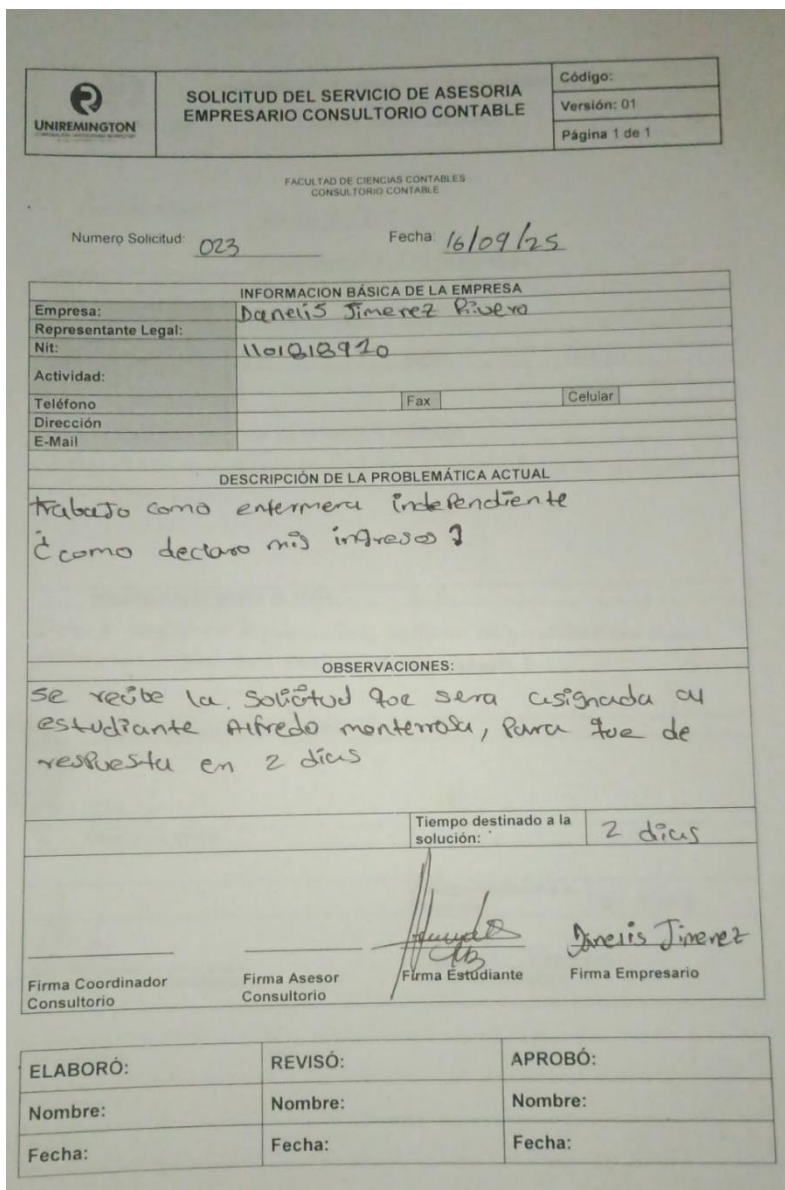 UNIREMINGTON
SOLICITUD DEL SERVICIO DE ASESORIA
EMPRESARIO CONSULTORIO CONTABLE
Código:
Versión: 01
Página 1 de 1
FACULTAD DE CIENCIAS CONTABLES
CONSULTORIO CONTABLE
Numero Solicitud: 023 Fecha: 16/09/25
INFORMACION BÁSICA DE LA EMPRESA
Empresa: Danelis Jimenez Rivero
Representante Legal:
Nit: 1101818920
Actividad:
Teléfono Fax Celular
Dirección
E-Mail
DESCRIPCIÓN DE LA PROBLEMÁTICA ACTUAL
trabajo como enfermera independiente
¿como declaro mis ingresos?
OBSERVACIONES:
se recibe la solicitud que sera asignada al
estudiante Alfredo monterrosa, Para que de
respuesta en 2 dias
Tiempo destinado a la
solución: 2 dias
Danelis Jimenez
Firma Coordinador
Consultorio
Firma Asesor
Consultorio
Firma Estudiante
Firma Empresario
ELABORÓ: REVISÓ: APROBÓ:
Nombre: Nombre: Nombre:
Fecha: Fecha: Fecha: